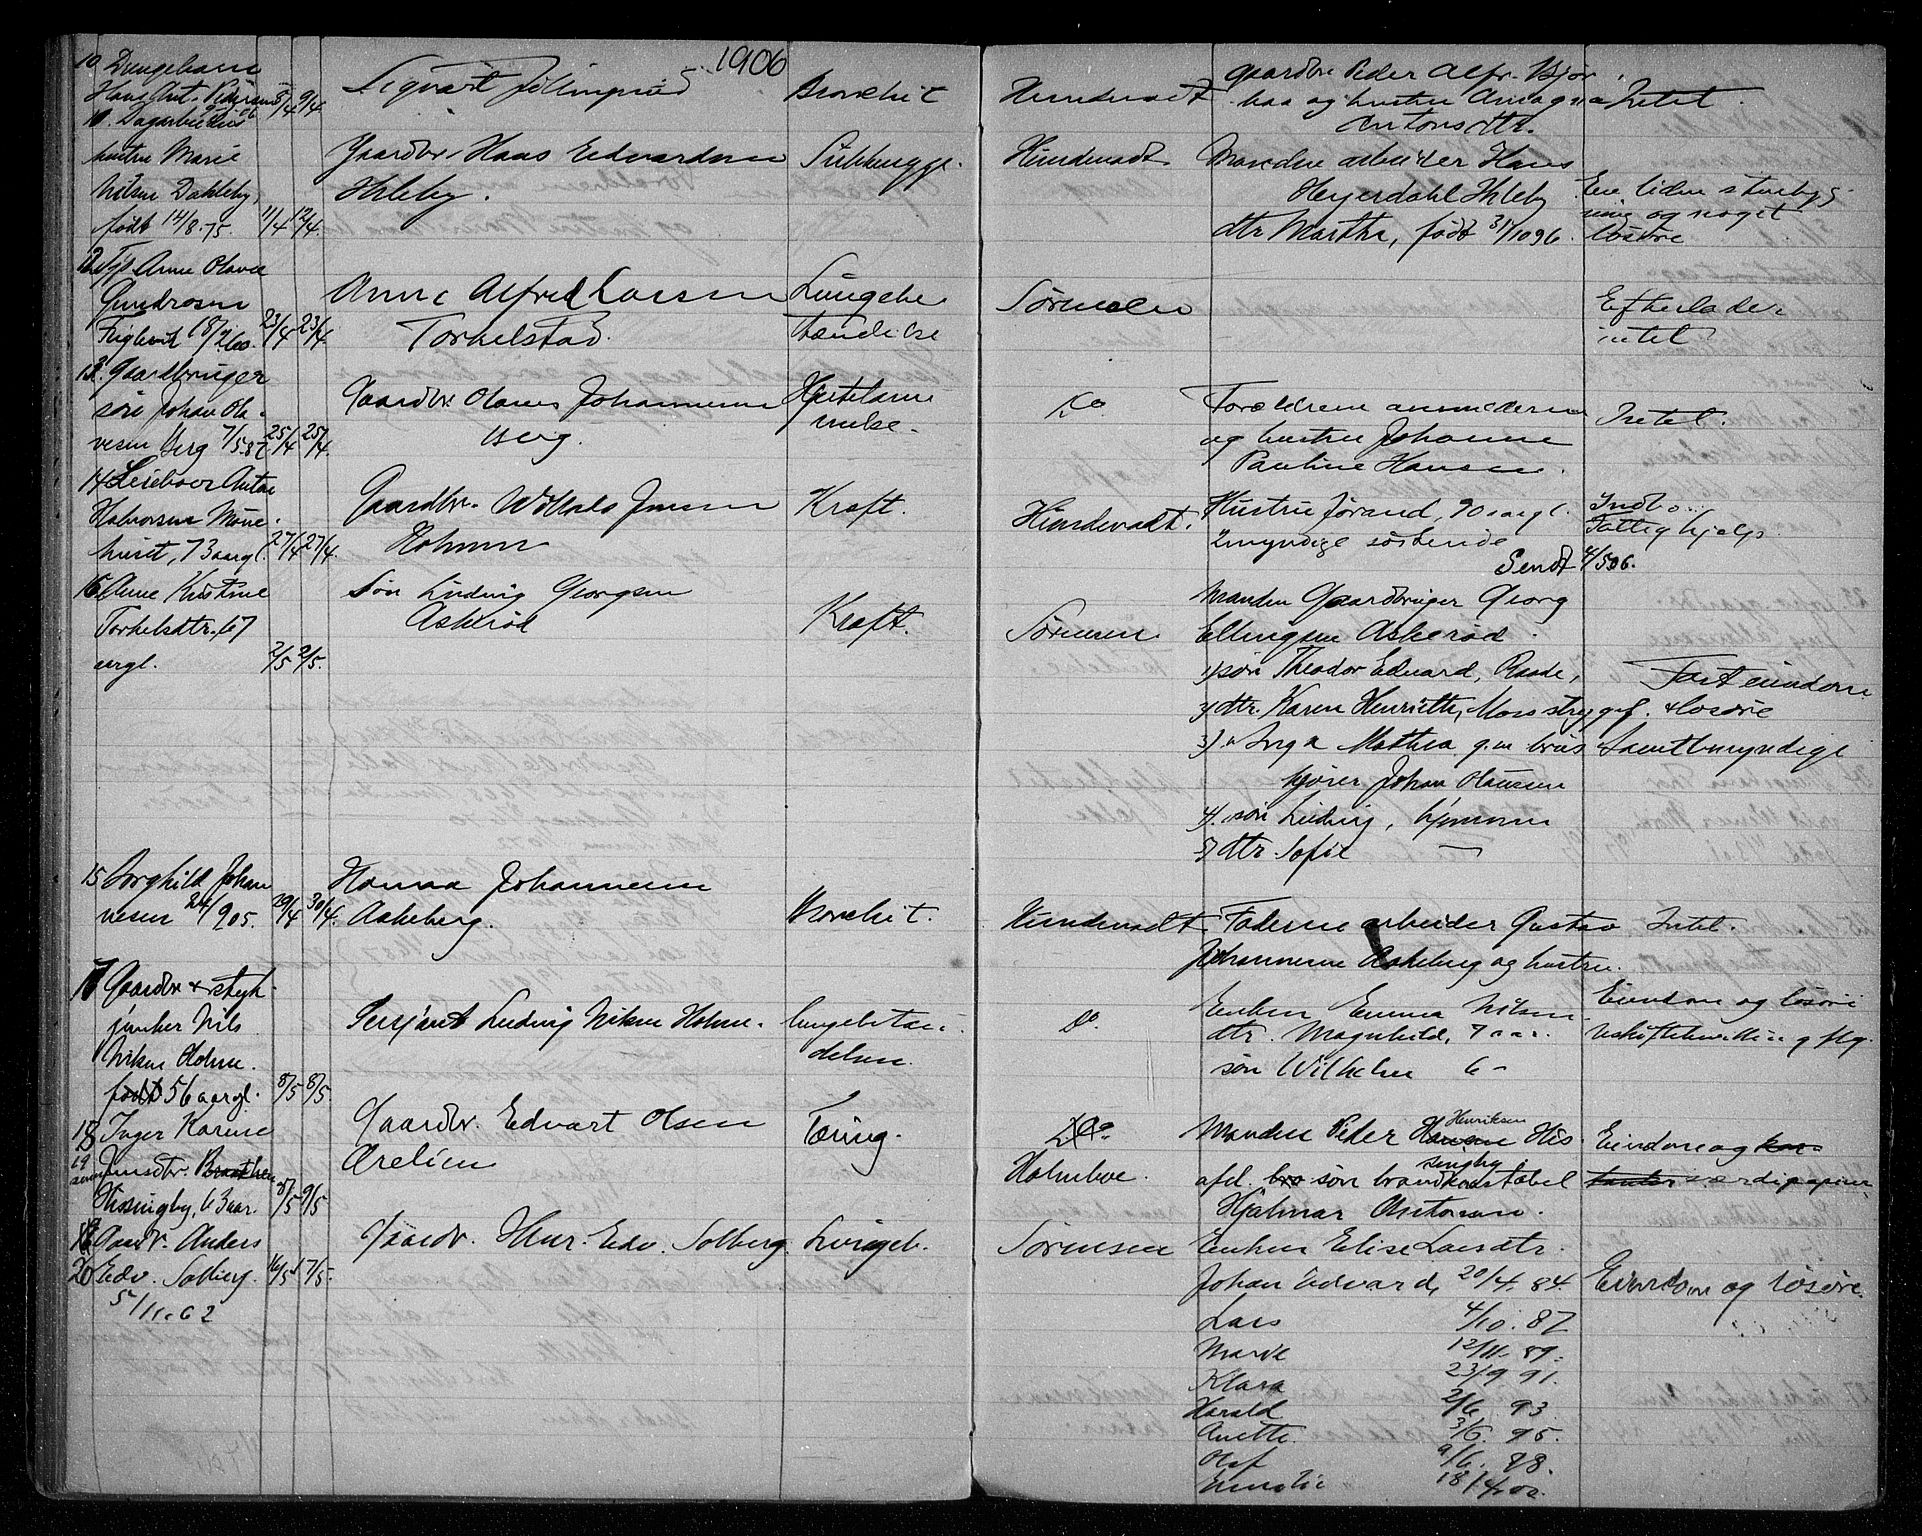 1906
10 Drengebarn
Hans Ant. Pedersen 8/4 9/4
Sigvart
Bronchit
Hundevadt
gaardbr. Peder Alfr. Bjør
baa og hustru Amagna
Antonsdtr.
Intet.
11. Dagarbeiders
hustru Marie
Nilsen Dakleby,
født 14/8.75. 11/4 12/4.
Gaardbr. Hans Edvardsen
Ihleby.
Hundevadt
Manden arbeider Hans
Heyerdahl Ihleby
dtr Marthe, født 31/10 96.
Een liden stuebyg-
ning og noget
løsøre
12. Anne Olava
Gundrosen
18/7 60. 23/4 23/4.
Anne Alfred Larsen
Torkelstad.
Lungebe
tændelse
Sørensen
Efterlader
intet
13. Gaardbruger
søn Johan Ola-
vesen Berg 7/5.87. 25/4 25/4.
Gaardbr. Olaves Johannesen
Berg.
Hjertelam
melse.
Do
Forældrene
og hustru Johanne
Pauline Hansen.
Intet.
14 Leieboer Anton
Halvorsen
huset, 73 aargl. 27/4 27/4.
Gaardbr. Jensen
Holmen
Kræft.
Hundevadt.
Hustru Jørand, 70 aargl.
2 myndige søskende
Sendt 4/5 06.
Indbo.
Fattighjælp.
16 Anne Kirstine
Torkelsdtr. 67
aargl. 2/5 2/5.
Søn Ludvig Georgsen
Askerød
Kræft.
Sørensen
Manden Gaardbruger Georg
Ellingsen Askerød.
1) søn Theodor Edvard, Raade,
2) dtr. Karen Henriette, Moss strygef.
3) " Inga Mathea g.m. brus
kjører Johan Olaussen
4). søn Ludvig, hjemme
5) dtr. Sofie —
Fast eiendom
& løsøre
Samtl. myndige
15 Borghild Johan
nesen 24/9 05. 29/4 30/4.
Johannesen
Askeberg.
Bronchit.
Hundevadt
Faderen arbeider Gustav
Johannesen Askeberg og hustru.
Intet.
17 Gaardbr. & styk-
junker Nils
Nilsen Holme.
født 56 aargl. 8/5 8/5.
Sersjant Ludvig Nilsen Holme.
Lungebetæn-
delsen.
Do.
Enken Emma Nilsen
dtr. Magnhild, 7 aar.
søn Wilhelm 6 –
Eiendom og løsøre
18 Inger Karine
19 Jensdtr. Braathen
Hissingby, 63 aar. 8/5 9/5
Gaardbr. Edvart Olsen
Ærelien
Tæring.
Do
Holmboe.
Manden Peder Hansen Henriksen His
singby
afd. bro søn brandkonstabel
Hjalmar Antonsen.
Eiendom og kon-
tanter værdipapirer
19 Gaardbr. Anders
20 Edv. Solberg. 16/5 17/5.
5/11.62
Gaardbr. Henr. Edv. Solberg.
Lungeb.
Sørensen
Enken Elise Larsdtr.
Johan Edvard, 20/4. 84.
Lars 4/10. 87
Marie 12/11. 89.
Klara 23/9 91.
Harald 2/6. 93.
Anette 3/6. 95.
Olaf 9/6. 98.
Emilie 18/4. 00.
Eiendom og løsøre.